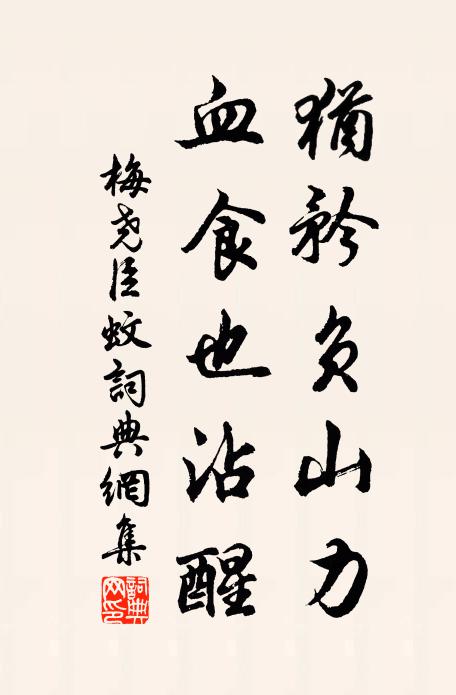 猶矜負山力
血食也沾醒
梅堯臣蚊詞典網集
詞典網印